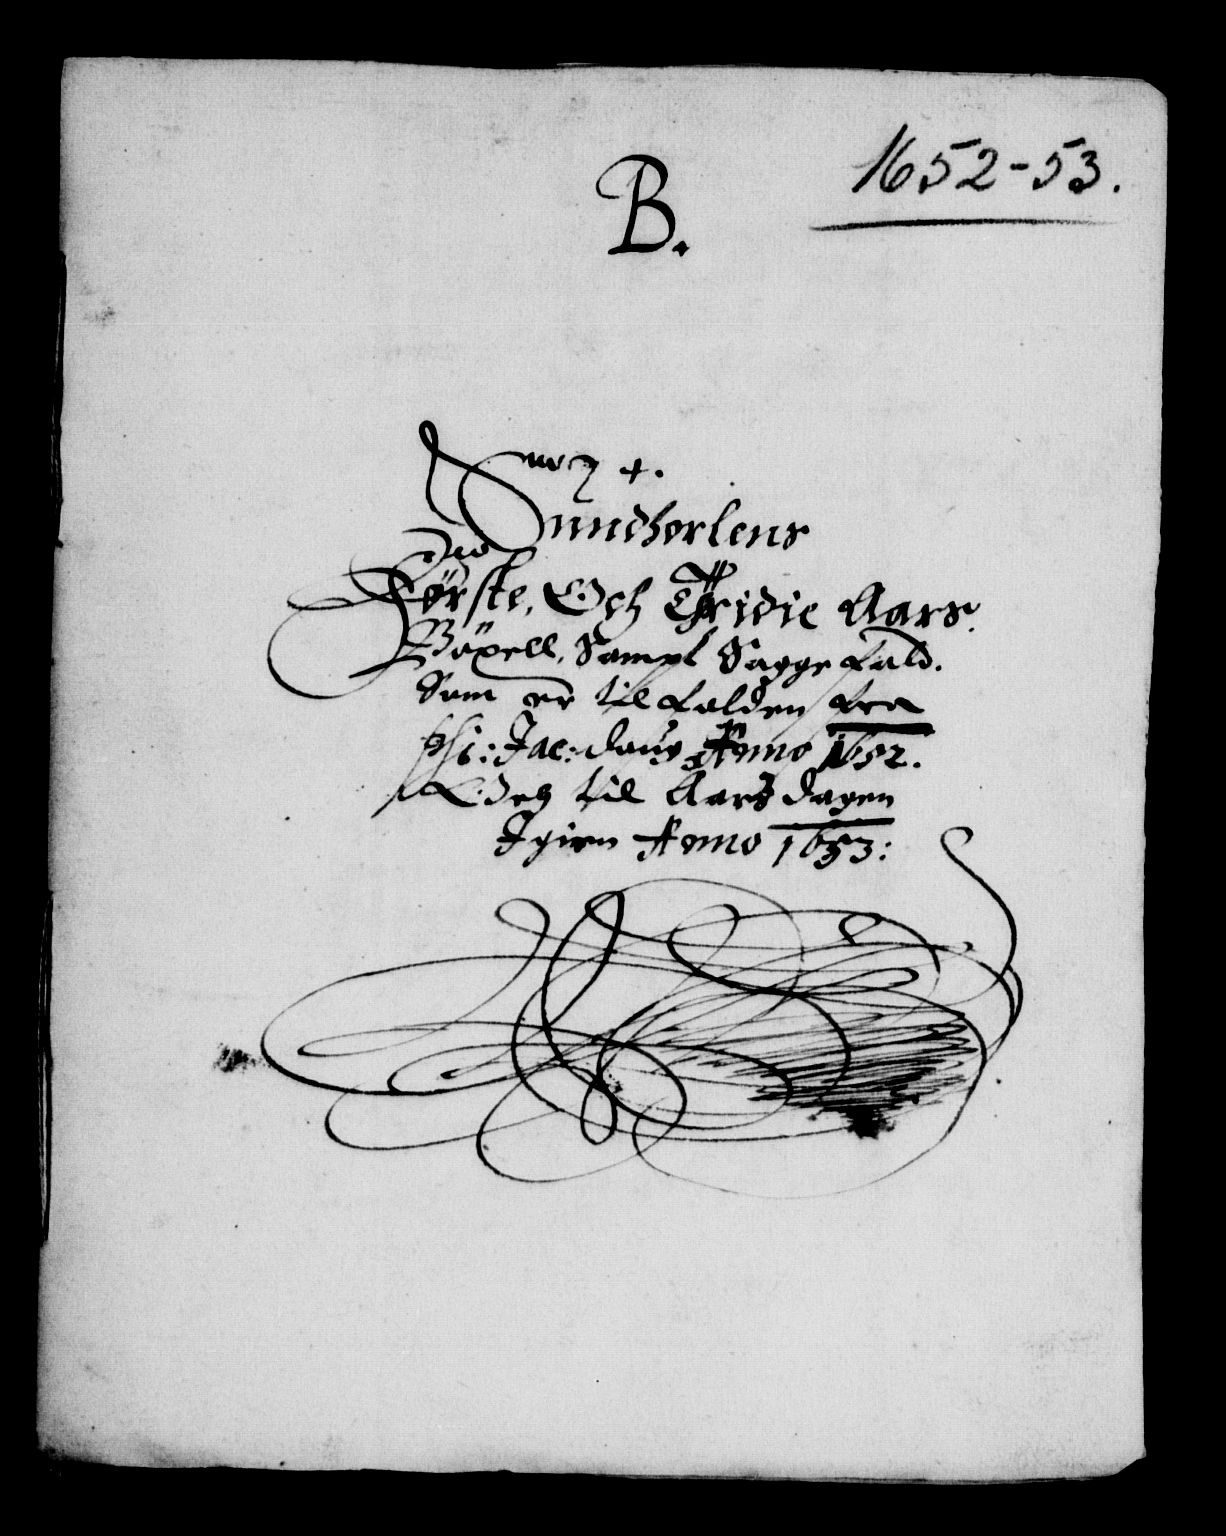 1652-53.
B.
No 7 +.
Sundhorlens
Første, Och Thridie Aars
Böxell, Sampt Sagge fald.
Som er til falden fra
Phi: Jac: daug Anno 1652.
Och til Aars dagen
Igien Anno 1653: